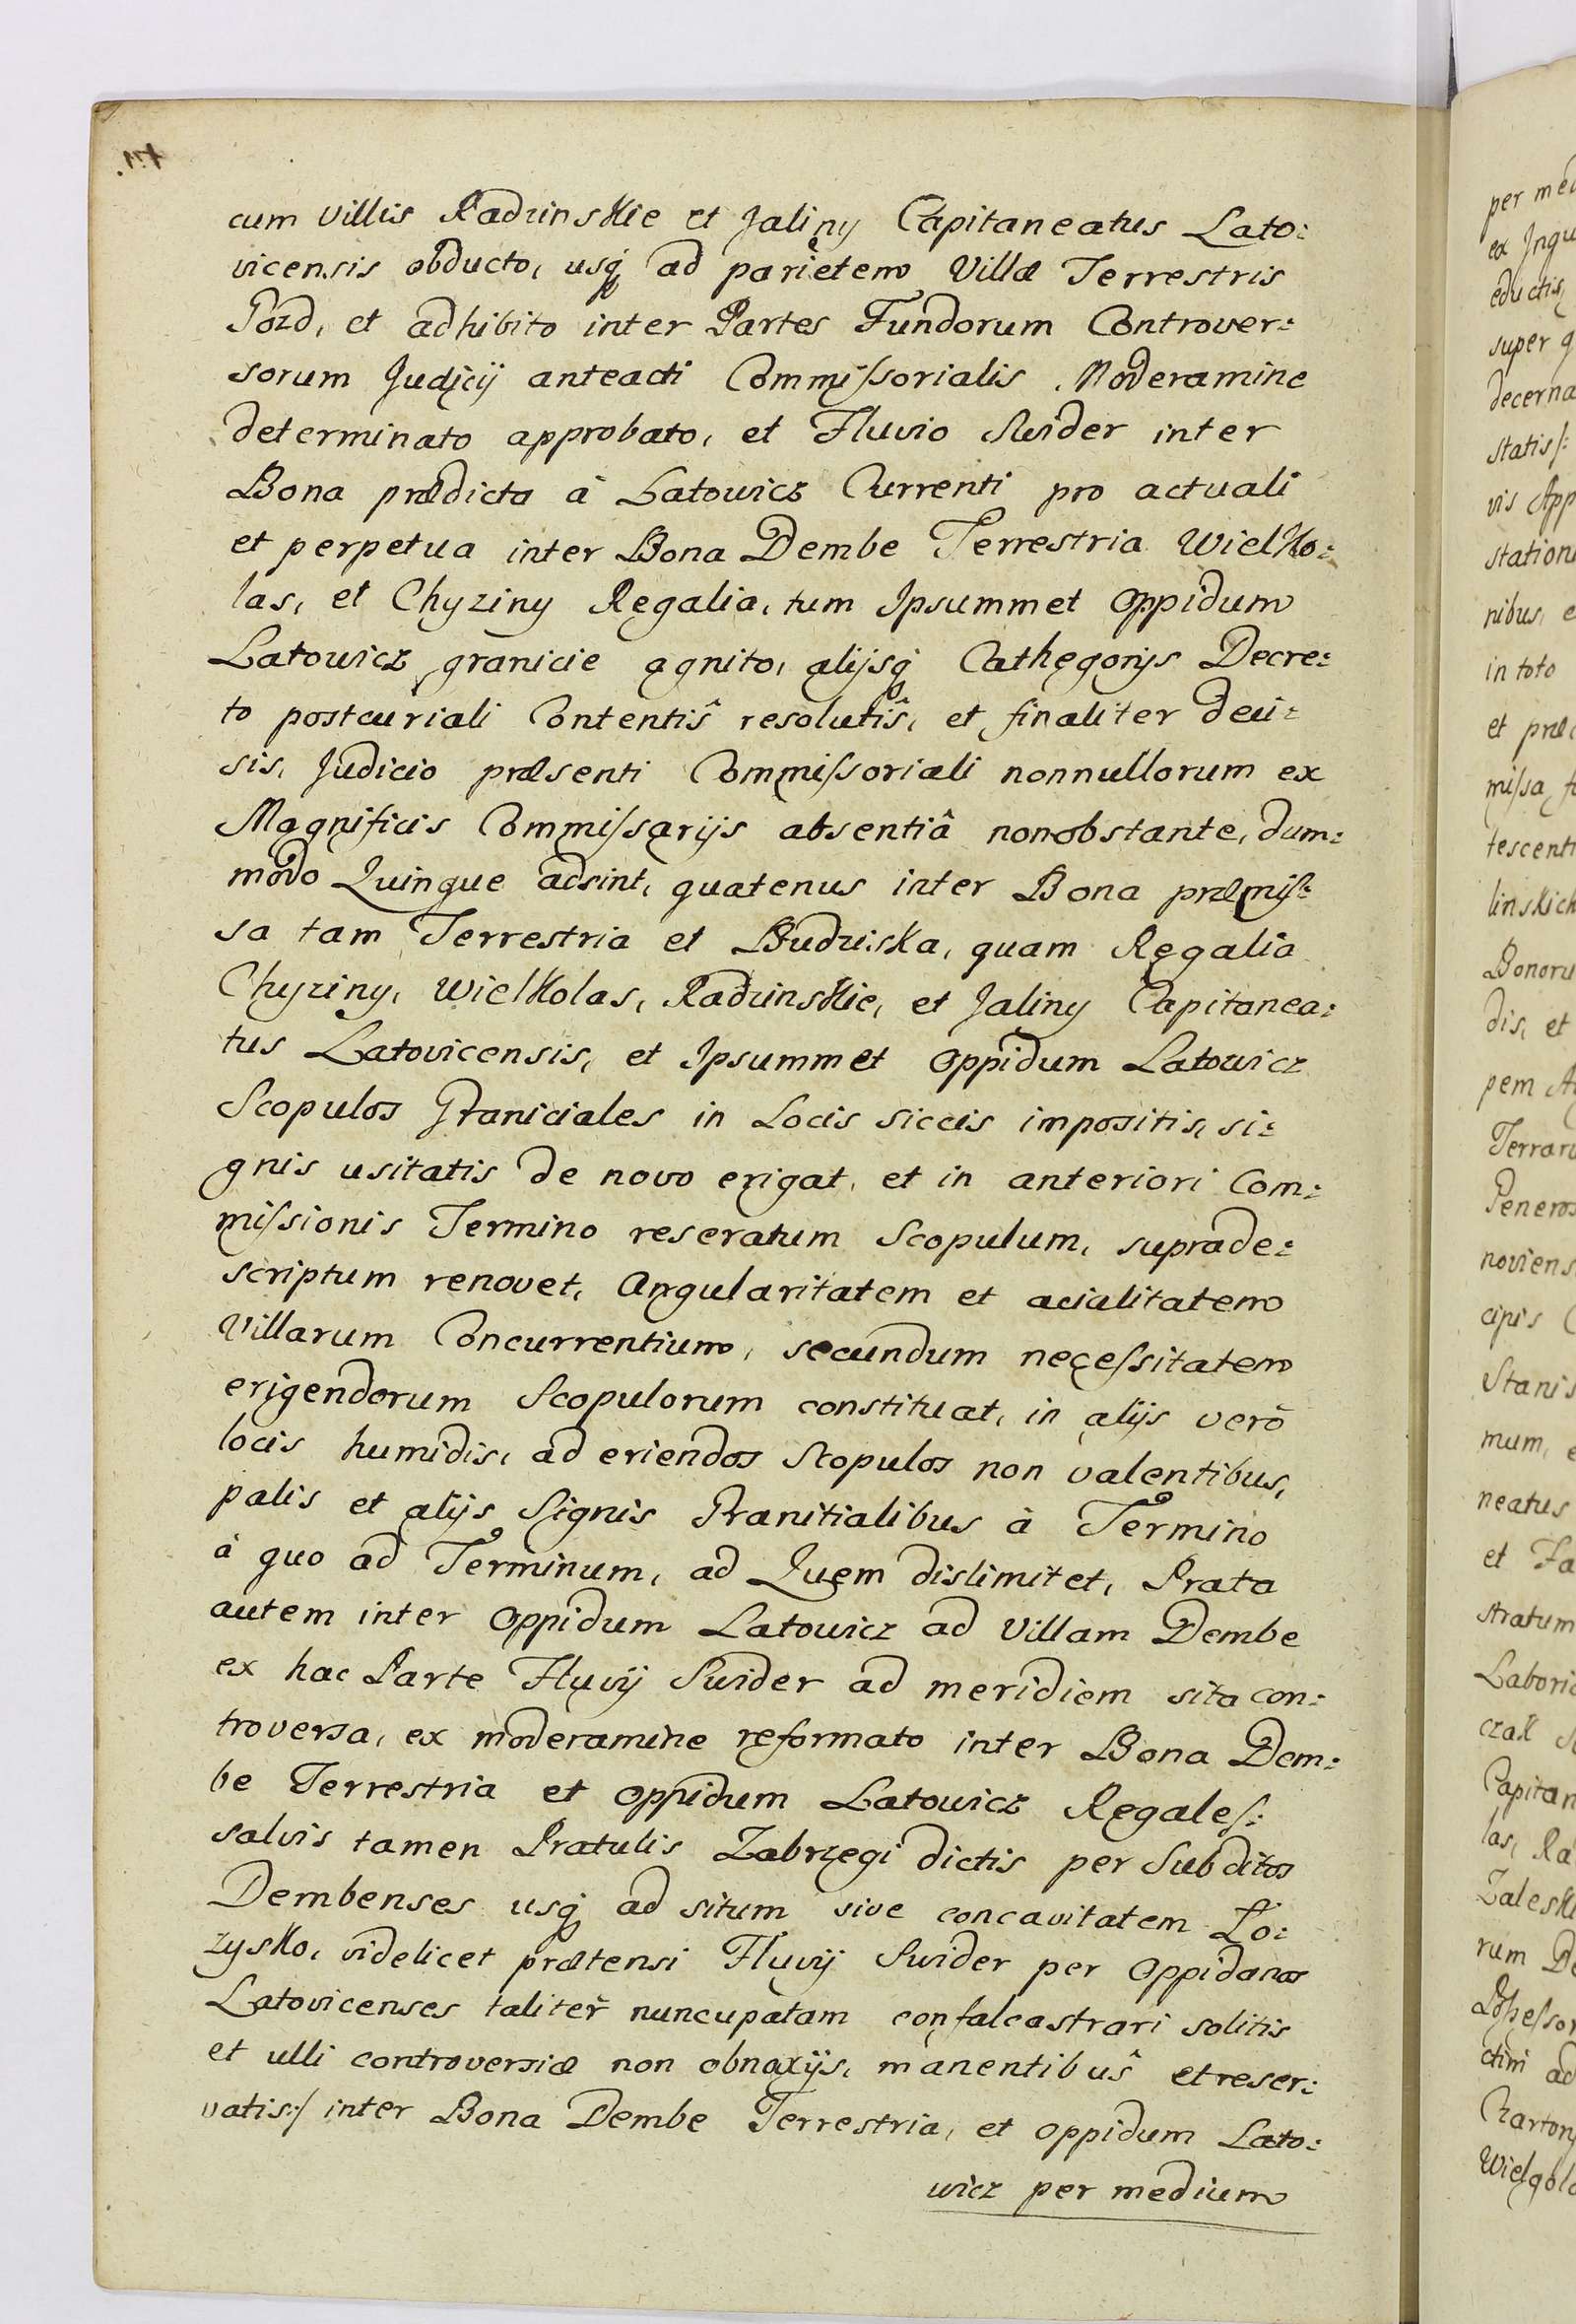 cum Villis Radzinskie et Jaliny Capitaneatus Lato:
vicensis obducto, usq ad parietem Villæ Terrestris
Gozd, et adhibito inter Partes Fundorum Controver:
sorum Judicij anteacti Commissorialis Moderamine
determinato approbato, et Fluvio Swider inter
Bona prædicta à Latowicz Currenti pro actuali
et perpetua inter Bona Dembe Terrestria Wielko:
las, et Chyziny Regalia, tum Ipsummet Oppidum
Latowicz granicie agnito, alijsq Cathegorijs Decre:
to postcuriali Contentîs resolutîs, et finaliter deci:
sis, Judicio præsenti Commissoriali nonnullorum ex
Magnificis Commissarijs absentiâ nonobstante, dum:
modo Quinque adsint, quatenus inter Bona præmis:
sa tam Terrestria et Budziska, quam Regalia
Chyziny, Wielkolas, Radzinskie, et Jaliny Capitanea:
tus Latovicensis, et Ipsummet Oppidum Latowicz
Scopulos Graniciales in Locis siccis impositis, si:
gnis usitatis de novo erigat, et in anteriori Com:
missionis Termino reseratum Scopulum, suprade:
scriptum renovet, Angularitatem et acialitatem
Villarum Concurrentium, secundum necessitatem
erigendorum Scopulorum constituat, in alijs verò
locis humidis, ad eriendos Scopulos non valentibus,
palis et alijs Signis Granitialibus à Termino
à quo ad Terminum, ad Quem dislimitet, Prata
autem inter Oppidum Latowicz ad Villam Dembe
ex hac Parte Fluvij Swider ad meridiem sita con:
troversa, ex moderamine reformato inter Bona Dem:
be Terrestria et Oppidum Latowicz Regales:
salvis tamen Pratulis Zabrzegi dictis per Subditos
Dembenses usq ad situm sive concavitatem Lo:
zysko, videlicet prætensi Fluvij Swider per Oppidanos
Latovicenses taliter nuncupatam confalcastrari solitis
et ulli controversiæ non obnoxijs, manentibus et reser:
vatis:/ inter Bona Dembe Terrestria, et Oppidum Lato:
wicz per medium
per med
ex Ingu
eductis,
super q
decerna
statis/:
vis App
station
nibus, e
in toto
et præ
missa, f
tescent
linskich
Bonoru
dis, et
pem A
Terraru
Generos
noviens
cipis C
Stanis
mum, e
neatus
et Fa
stratum
Laboric
czak S
Capitan
las, Ra
Zaleski
rum De
Possessor
ctim ad
Czartory
Wielgola